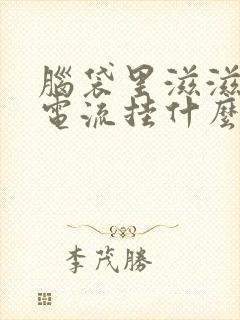 腦袋里滋滋
電流挂什麼
李茂勝